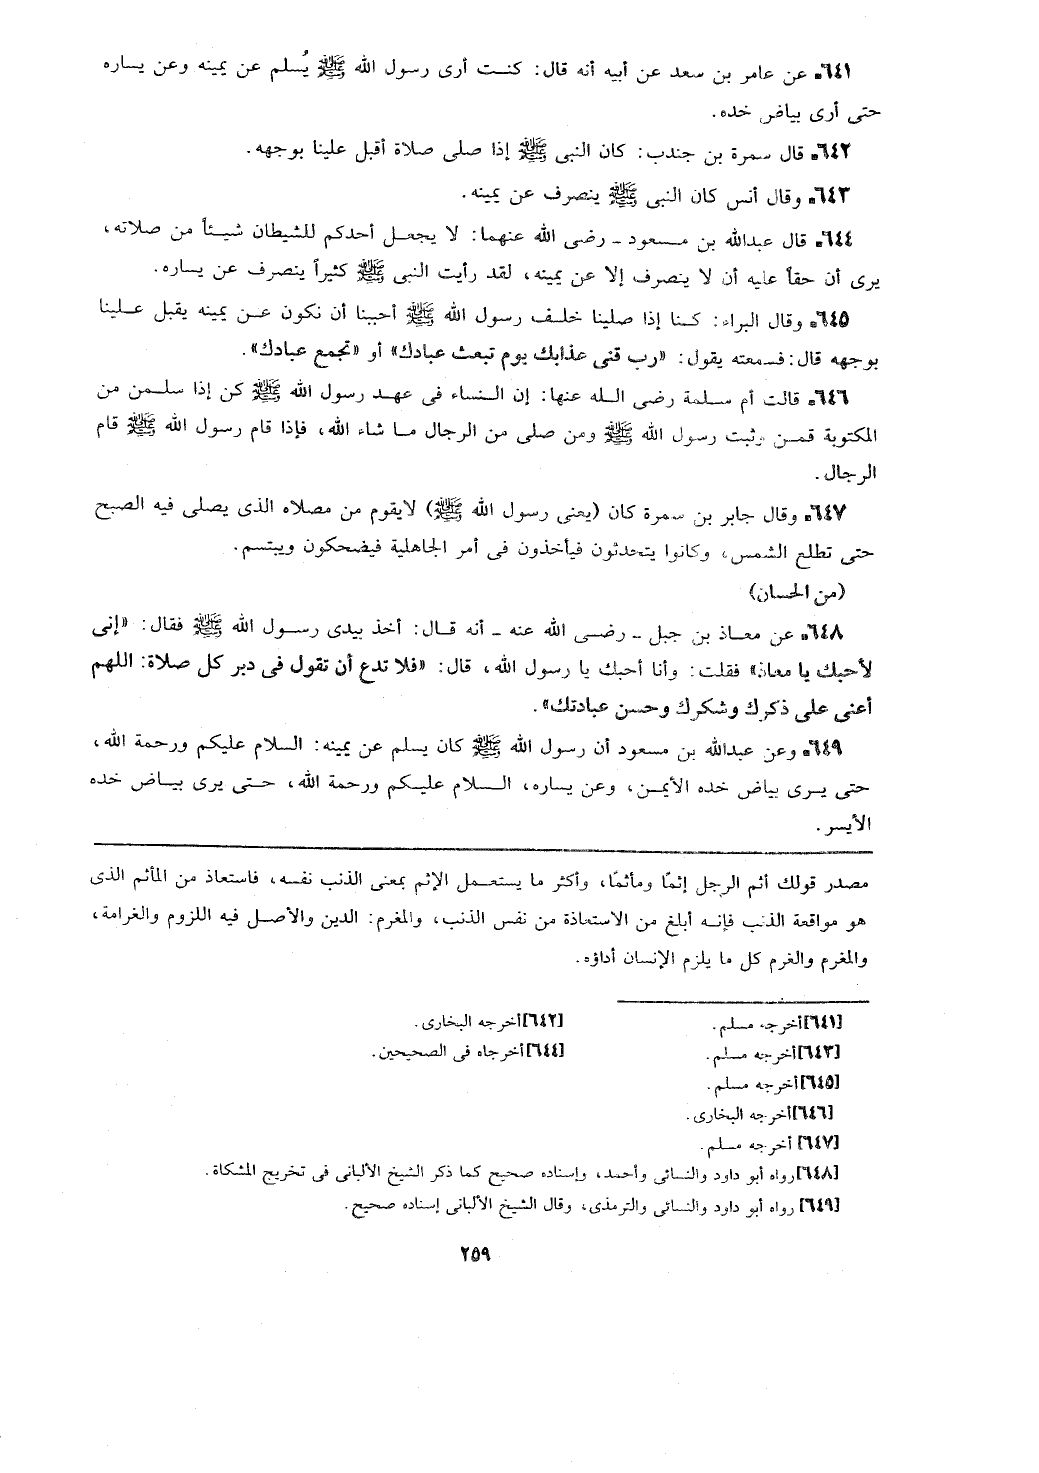 ٦٤١ـ عن عامر بن سعد عن أبيه أنه قال: كنت أرى رسول الله ﷺ يُسلم عن يمينه وعن يساره
حتى أرى بياض خده.
٦٤٢ـ قال سمرة بن جندب: كان النبى ﷺ إذا صلى صلاة أقبل علينا بوجهه.
٦٤٣ـ وقال أنس كان النبى ﷺ ينصرف عن يمينه.
٦٤٤ـ قال عبدالله بن مسعود ـ رضى الله عنهما: لا يجعل أحدكم للشيطان شيئاً من صلاته،
يرى أن حقاً عليه أن لا ينصرف إلا عن يمينه، لقد رأيت النبى ﷺ كثيراً ينصرف عن يساره.
٦٤٥ـ وقال البراء: كنا إذا صلينا خلف رسول الله ﷺ أحببنا أن نكون عن يمينه يقبل علينا
بوجهه قال: فسمعته يقول: «رب قنى عذابك يوم تبعث عبادك» أو «تجمع عبادك».
٦٤٦ـ قالت أم سلمة رضى الله عنها: إن النساء فى عهد رسول الله ﷺ كن إذا سلمن من
المكتوبة قمن وثبت رسول الله ﷺ ومن صلى من الرجال ما شاء الله، فإذا قام رسول الله ﷺ قام
الرجال.
٦٤٧ـ وقال جابر بن سمرة كان (يعنى رسول الله ﷺ) لايقوم من مصلاه الذى يصلى فيه الصبح
حتى تطلع الشمس، وكانوا يتحدثون فيأخذون فى أمر الجاهلية فيضحكون ويبتسم.
(من الحسان)
٦٤٨ـ عن معاذ بن جبل ـ رضى الله عنه ـ أنه قال: أخذ بيدى رسول الله ﷺ فقال: «إنى
لأحبك يا معاذ» فقلت: وأنا أحبك يا رسول الله، قال: «فلا تدع أن تقول فى دبر كل صلاة: اللهم
أعنى على ذكرك وشكرك وحسن عبادتك».
٦٤٩ـ وعن عبدالله بن مسعود أن رسول الله ﷺ كان يسلم عن يمينه: السلام عليكم ورحمة الله،
حتى يرى بياض خده الأيمن، وعن يساره، السلام عليكم ورحمة الله، حتى يرى بياض خده
الأيسر.
مصدر قولك أثم الرجل إثمًا ومأثمًا، وأكثر ما يستعمل الإثم بمعنى الذنب نفسه، فاستعاذ من المأثم الذى
هو مواقعة الذنب فإنه أبلغ من الاستعاذة من نفس الذنب، والمغرم: الدين والأصل فيه اللزوم والغرامة،
والمغرم والغرم كل ما يلزم الإنسان أداؤه.
[٦٤١]أخرجه مسلم. [٦٤٢]أخرجه البخارى.
[٦٤٣]أخرجه مسلم. [٦٤٤]أخرجاه فى الصحيحين.
[٦٤٥]أخرجه مسلم.
[٦٤٦]أخرجه البخارى.
[٦٤٧] أخرجه مسلم.
[٦٤٨]رواه أبو داود والنسائى وأحمد، وإسناده صحيح كما ذكر الشيخ الألبانى فى تخريج المشكاة.
[٦٤٩] رواه أبو داود والنسائى والترمذى، وقال الشيخ الألبانى إسناده صحيح.
٢٥٩